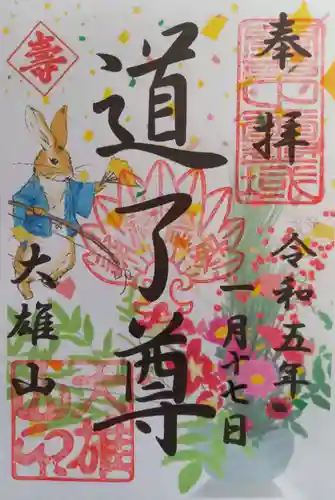 奉拝
令和五年
一月十七日
道了尊
大雄山
壽